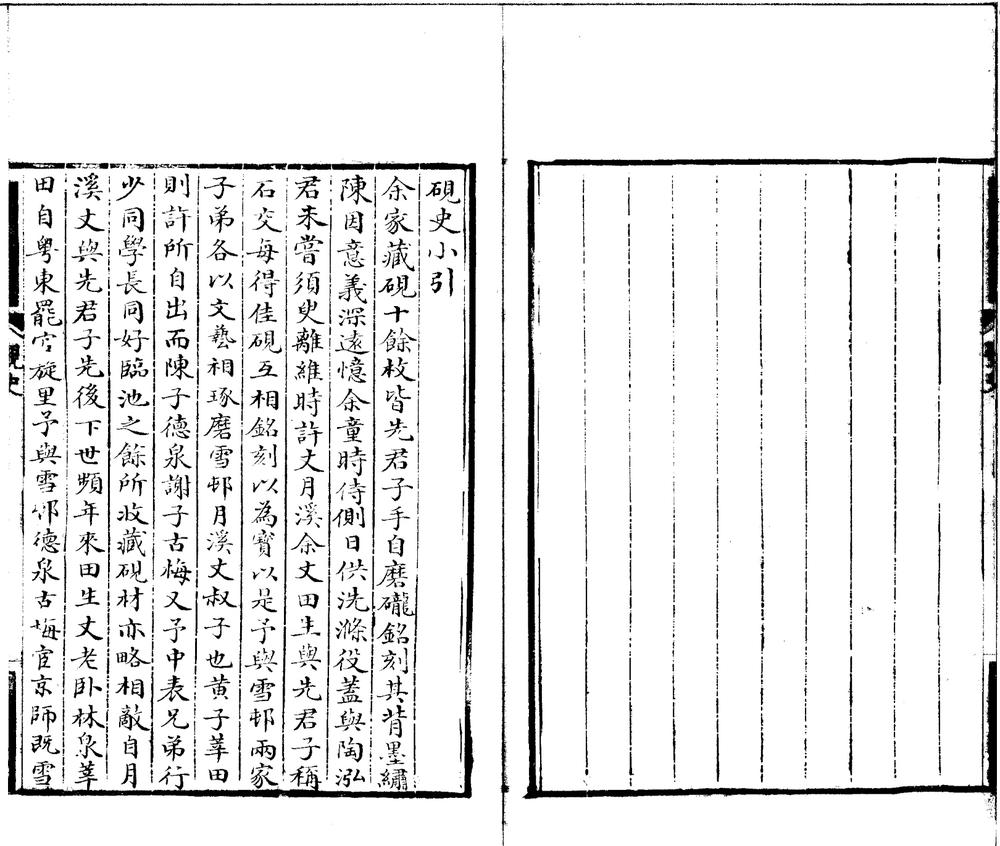 硯史小引
余家藏硯十餘枚皆先君子手自磨礲銘刻其背墨繡
陳因意義深遠憶余童時侍側日供洗滌役蓋與陶泓
君未嘗須臾離維時許丈月溪余丈田生與先君子稱
石交每得佳硯互相銘刻以為寳以是予與雪邨兩家
子弟各以文藝相琢磨雪邨月溪丈叔子也黄子莘田
則許所自出而陳子德泉謝子古梅又予中表兄弟行
少同學長同好臨池之餘所收藏硯材亦略相敵自月
溪丈與先君子先後下世頻年來田生丈老卧林泉莘
田自粤東罷官旋里予與雪邨德泉古梅宦京師既雪
硯史